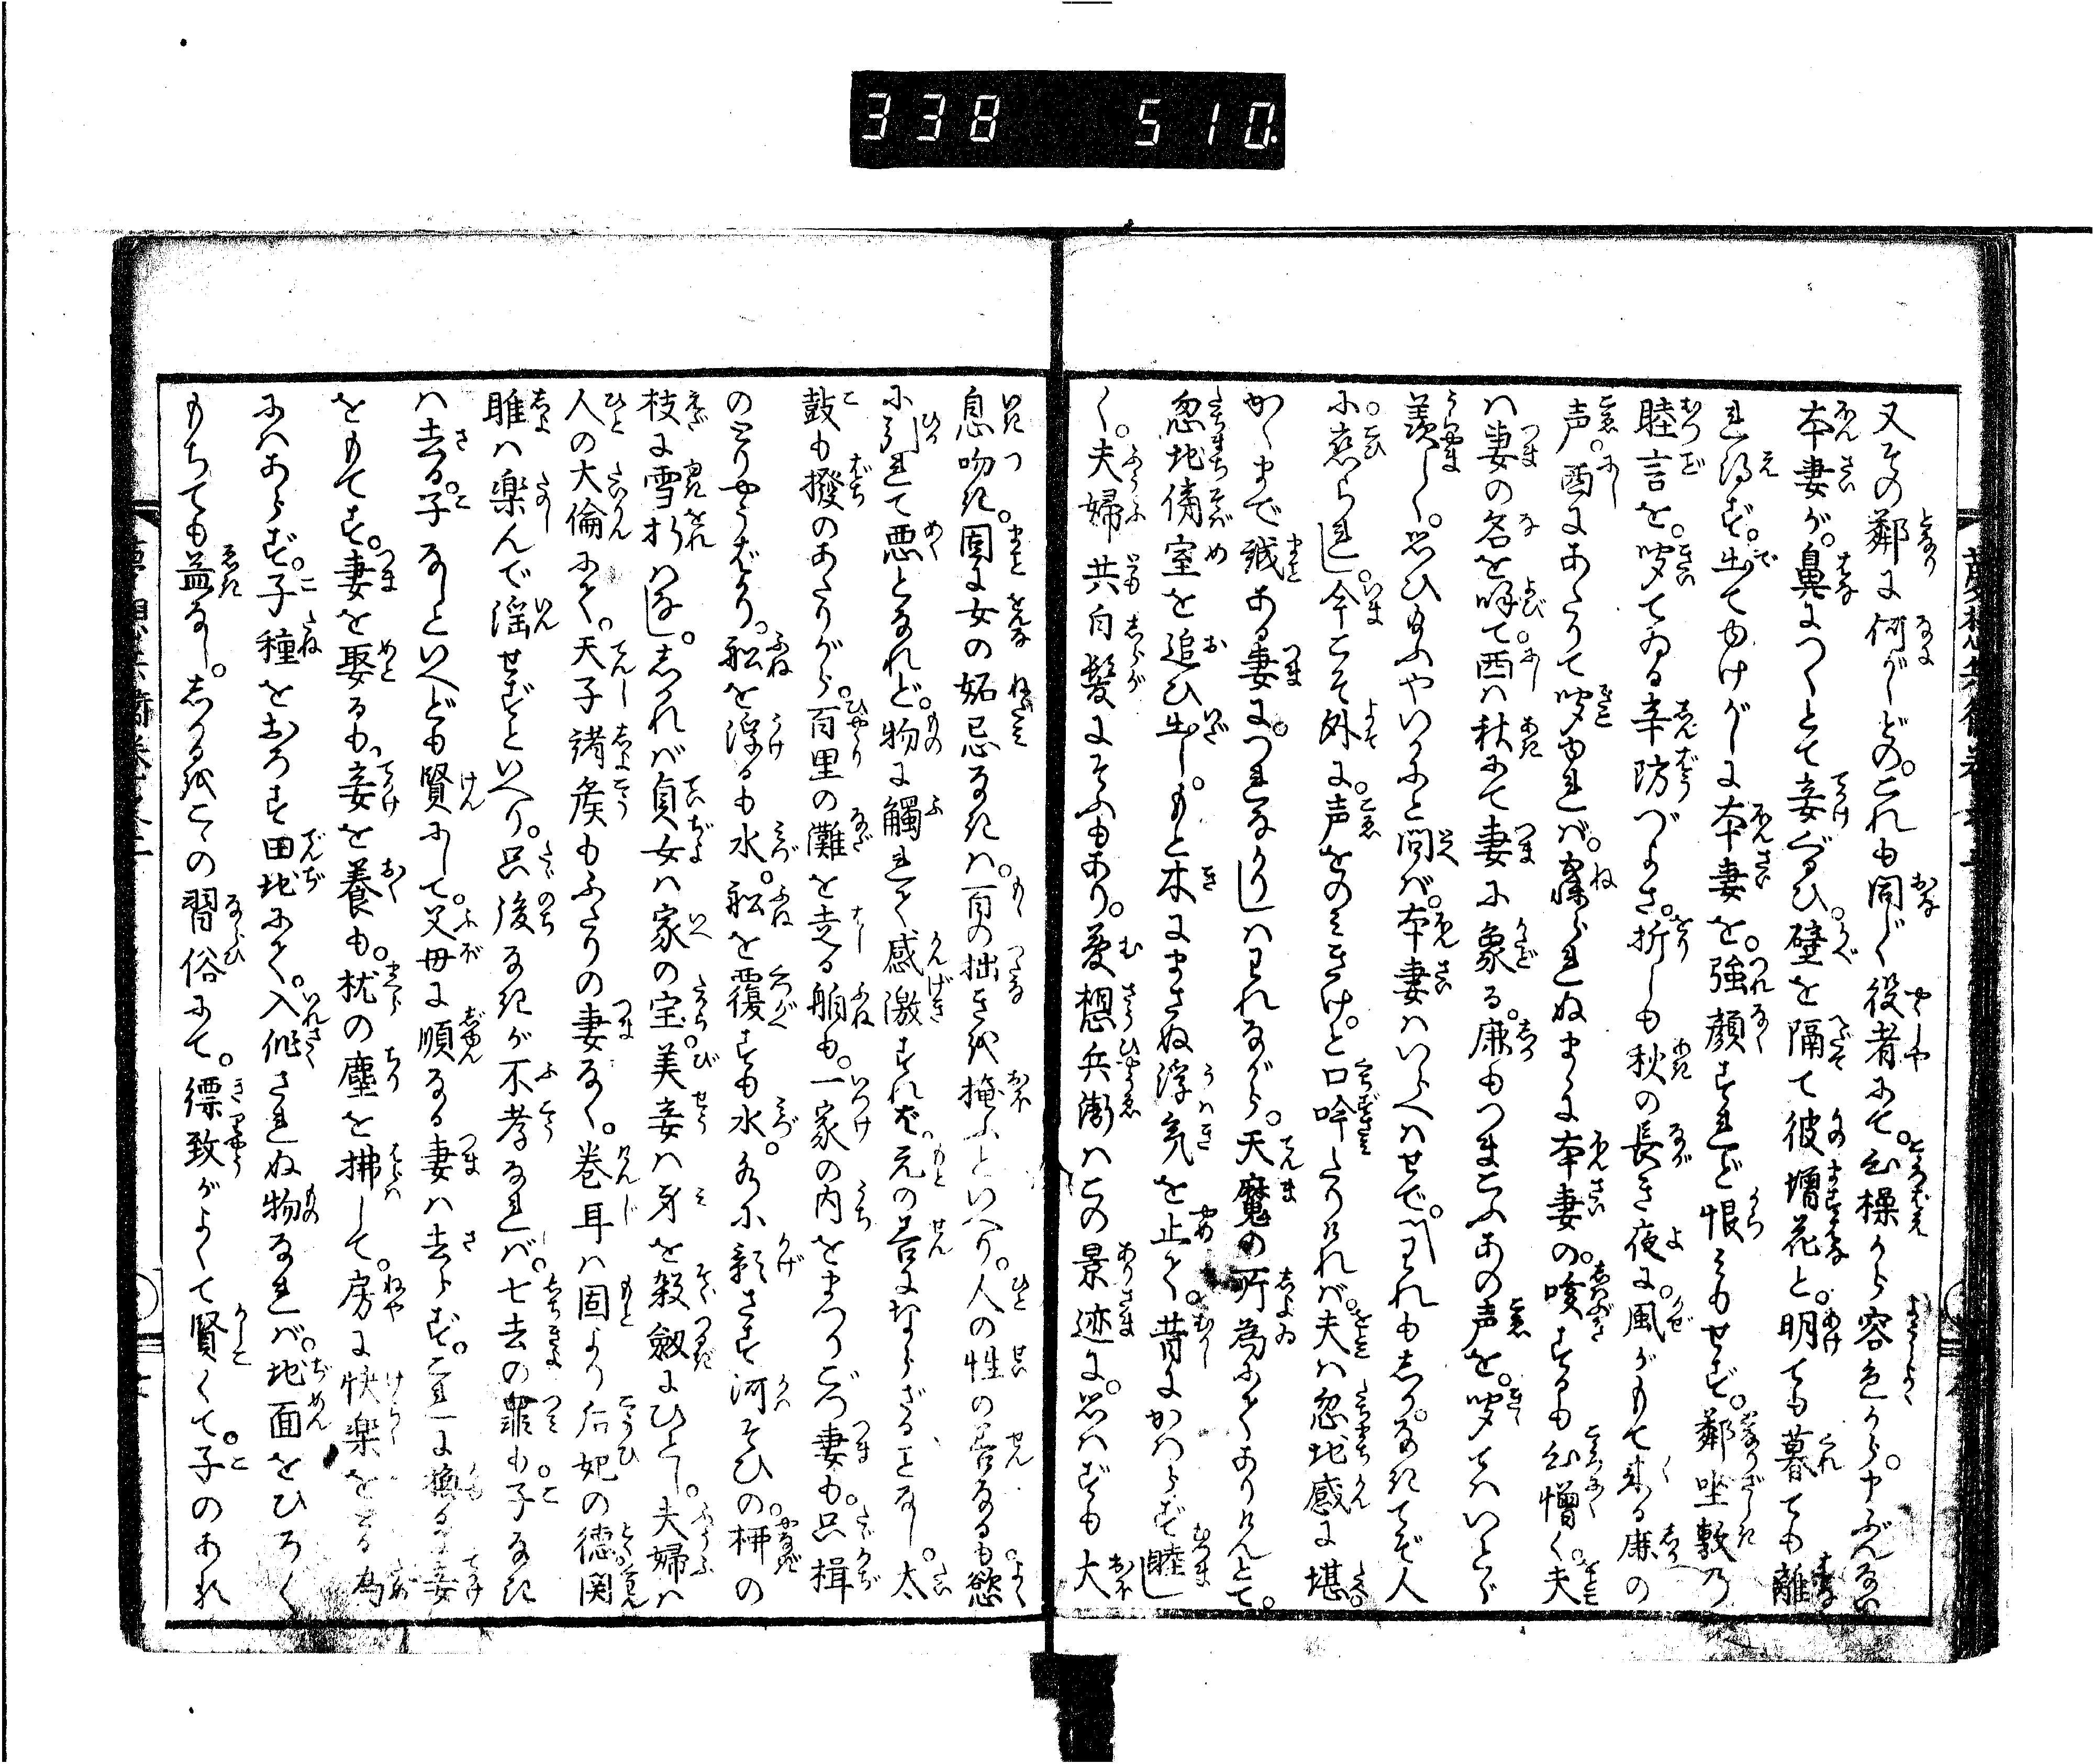 338 510
又その鄰に何がしどの。これも同じく役者にて。心操から容色から。申ぶんない
本妻が。鼻につくとて妾ぐるひ。壁を隔て彼増花と。明ても暮ても離
れ得ず。出てゆけがしに本妻を。強顔すれど恨みもせず。鄰坐敷の
睦言を。聞てゐる辛防づよさ。折しも秋の長き夜に。風がもて来る鹿の
声。酉にあたりて聞ゆれば。寐られぬまゝに本妻の。咳するも心憎く。夫
は妻の名を呼て。酉は秋にて妻に象る。鹿もつまこふあの声を。聞てはいとゞ
羨し。思ひ給ふやいかにと問ば。本妻はいらへはせで。われもしかなきてぞ人
に恋られし。今こそ外に。声をのみきけ。と口吟たりければ。夫は忽地感に堪。
かくまで誠ある妻に。つれなかりしはわれながら。天魔の所為にてありけんとて。
忽地傍室を追ひ出し。もと木にまさぬ浮気を止て。昔にかはらず睦し
く。夫婦共白髪にそふもあり。夢想兵衛はこの景迹に。思はずも大
息吻き。固に女の妬忌なきは。百の拙きを掩ふといへり。人の性の善なるも欲
に引れて悪となれど。物に觸れて感激すれば。元の善にならざることなし。太
鼓も撥のあたりがら。百里の灘を走る船も。一家の内をまつりごつ妻も。只楫
のとりやうばかり。船を浮るも水。船を覆すも水。水に影さす河そひの。柳の
枝に雪折はなし。しかれば貞女は家の宝。美妾は身を殺劔にひとし。夫婦は
人の大倫にて。天子諸侯もふたりの妻なく。巻耳は固より后妃の徳。関
雎は楽んで滛せずといへり。只後なきが不孝なれば。七去の罪も子なき
は去る。子なしといへども賢にして。父母に順なる妻は去らず。これに換る妾
をもてす。妻を娶るも、妾を養も。枕の塵を拂して。房に快楽をとる為
にはあらず。子種をおろす田地にて。入作されぬ物なれば。地面をひろく
もちても益なし。しかるをこゝの習俗にて。縹致がよくて賢くて。子のあれ